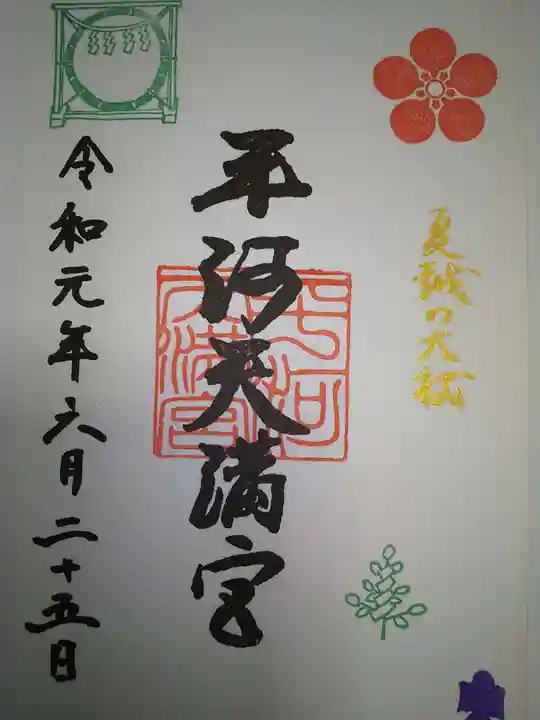 夏越の大祓
平河天満宮
令和元年六月二十五日
平河天満宮